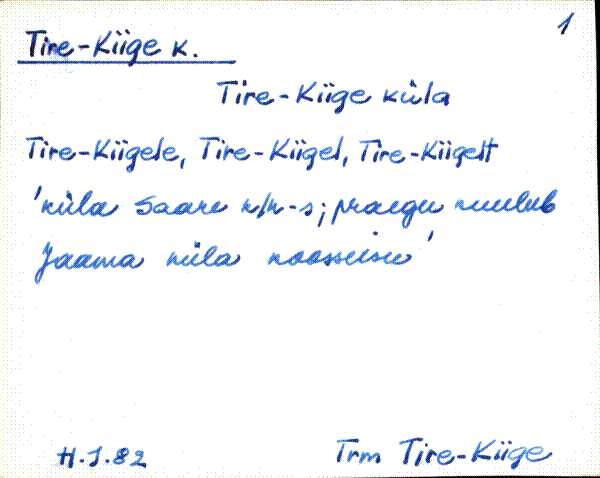 1
Tire-Kiige k.
Tire-Kiige küla
Tire-Kiigele, Tire-Kiigel, Tire-Kiigelt
'küla Saare k/n-s; praegu kuulub
Jaama küla koosseisu'
H.J.82 Trm Tire-Kiige